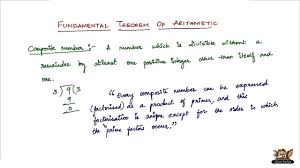 FUNDAMENTAL THEOREM OF ARITMETIC
Composite number :- A number which is divisible without a
remainder by atleast one positive integer other than itself and
one.
3 ) 9 ( 3
9
0
"Every composite number can be expressed
(factorised) as a product of primes, and this
factorisation is unique except for the order in which
the prime factors occur."